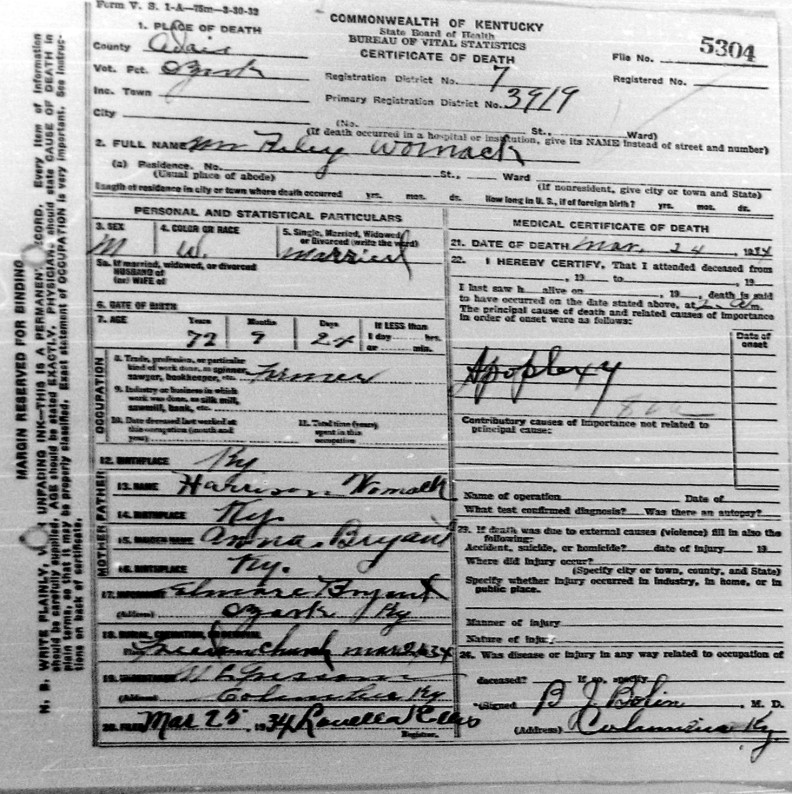 Form V. S. 1-A—75m—3-30-32
COMMONWEALTH OF KENTUCKY
State Board of Health
BUREAU OF VITAL STATISTICS
CERTIFICATE OF DEATH
File No. 5304
Registered No.
1. PLACE OF DEATH
County Adair
Vot. Pct. Ozark
Inc. Town
City
Registration District No. 7
Primary Registration District No. 3919
(No. St., Ward)
(If death occurred in a hospital or institution, give its NAME instead of street and number)
2. FULL NAME Mr Riley Womack
(a) Residence. No. St., Ward
(Usual place of abode) (If nonresident, give city or town and State)
Length of residence in city or town where death occurred yrs. mos. ds. How long in U. S., if of foreign birth? yrs. mos. ds.
PERSONAL AND STATISTICAL PARTICULARS
3. SEX 4. COLOR OR RACE 5. Single, Married, Widowed or Divorced (write the word)
M W. Married
5a. If married, widowed, or divorced
HUSBAND of
(or) WIFE of
6. DATE OF BIRTH
7. AGE Years Months Days If LESS than
72 9 24 1 day hrs.
or min.
OCCUPATION
8. Trade, profession, or particular
kind of work done, as spinner,
sawyer, bookkeeper, etc. Farmer
9. Industry or business in which
work was done, as silk mill,
sawmill, bank, etc.
10. Date deceased last worked at
this occupation (month and
year)
11. Total time (years)
spent in this
occupation
12. BIRTHPLACE Ky
FATHER
13. NAME Harrison Womack
14. BIRTHPLACE Ky.
MOTHER
15. MAIDEN NAME Anna Bryant
16. BIRTHPLACE Ky.
17. Bryant
(Address) Ozark Ky
18. BURIAL, CREMATION, OR REMOVAL
Church Mar
19.
(Address) Columbia Ky.
20. FILED Mar 25, 1934 Louella Ellis
Registrar.
MEDICAL CERTIFICATE OF DEATH
21. DATE OF DEATH Mar. 24, 1934
22. I HEREBY CERTIFY, That I attended deceased from
, 19 to , 19
I last saw h alive on , 19 , death is said
to have occurred on the date stated above, at m.
The principal cause of death and related causes of importance
in order of onset were as follows:
Date of
onset
Apoplexy
Contributory causes of importance not related to
principal cause:
Name of operation Date of
What test confirmed diagnosis? Was there an autopsy?
23. If death was due to external causes (violence) fill in also the
following:
Accident, suicide, or homicide? date of injury 19
Where did injury occur?
(Specify city or town, county, and State)
Specify whether injury occurred in industry, in home, or in
public place.
Manner of injury
Nature of injury
24. Was disease or injury in any way related to occupation of
deceased? If so, specify
(Signed B J Bolin, M. D.
(Address) Columbia Ky.
MARGIN RESERVED FOR BINDING
N. B. WRITE PLAINLY, UNFADING INK—THIS IS A PERMANENT RECORD. Every item of information
should be carefully supplied. AGE should be stated EXACTLY. PHYSICIANS should state CAUSE OF DEATH in
plain terms, so that it may be properly classified. Exact statement of OCCUPATION is very important. See instruc-
tions on back of certificate.